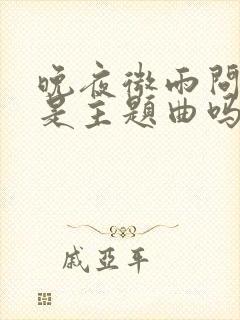 晚夜微雨问
是主题曲吗
戚亚平